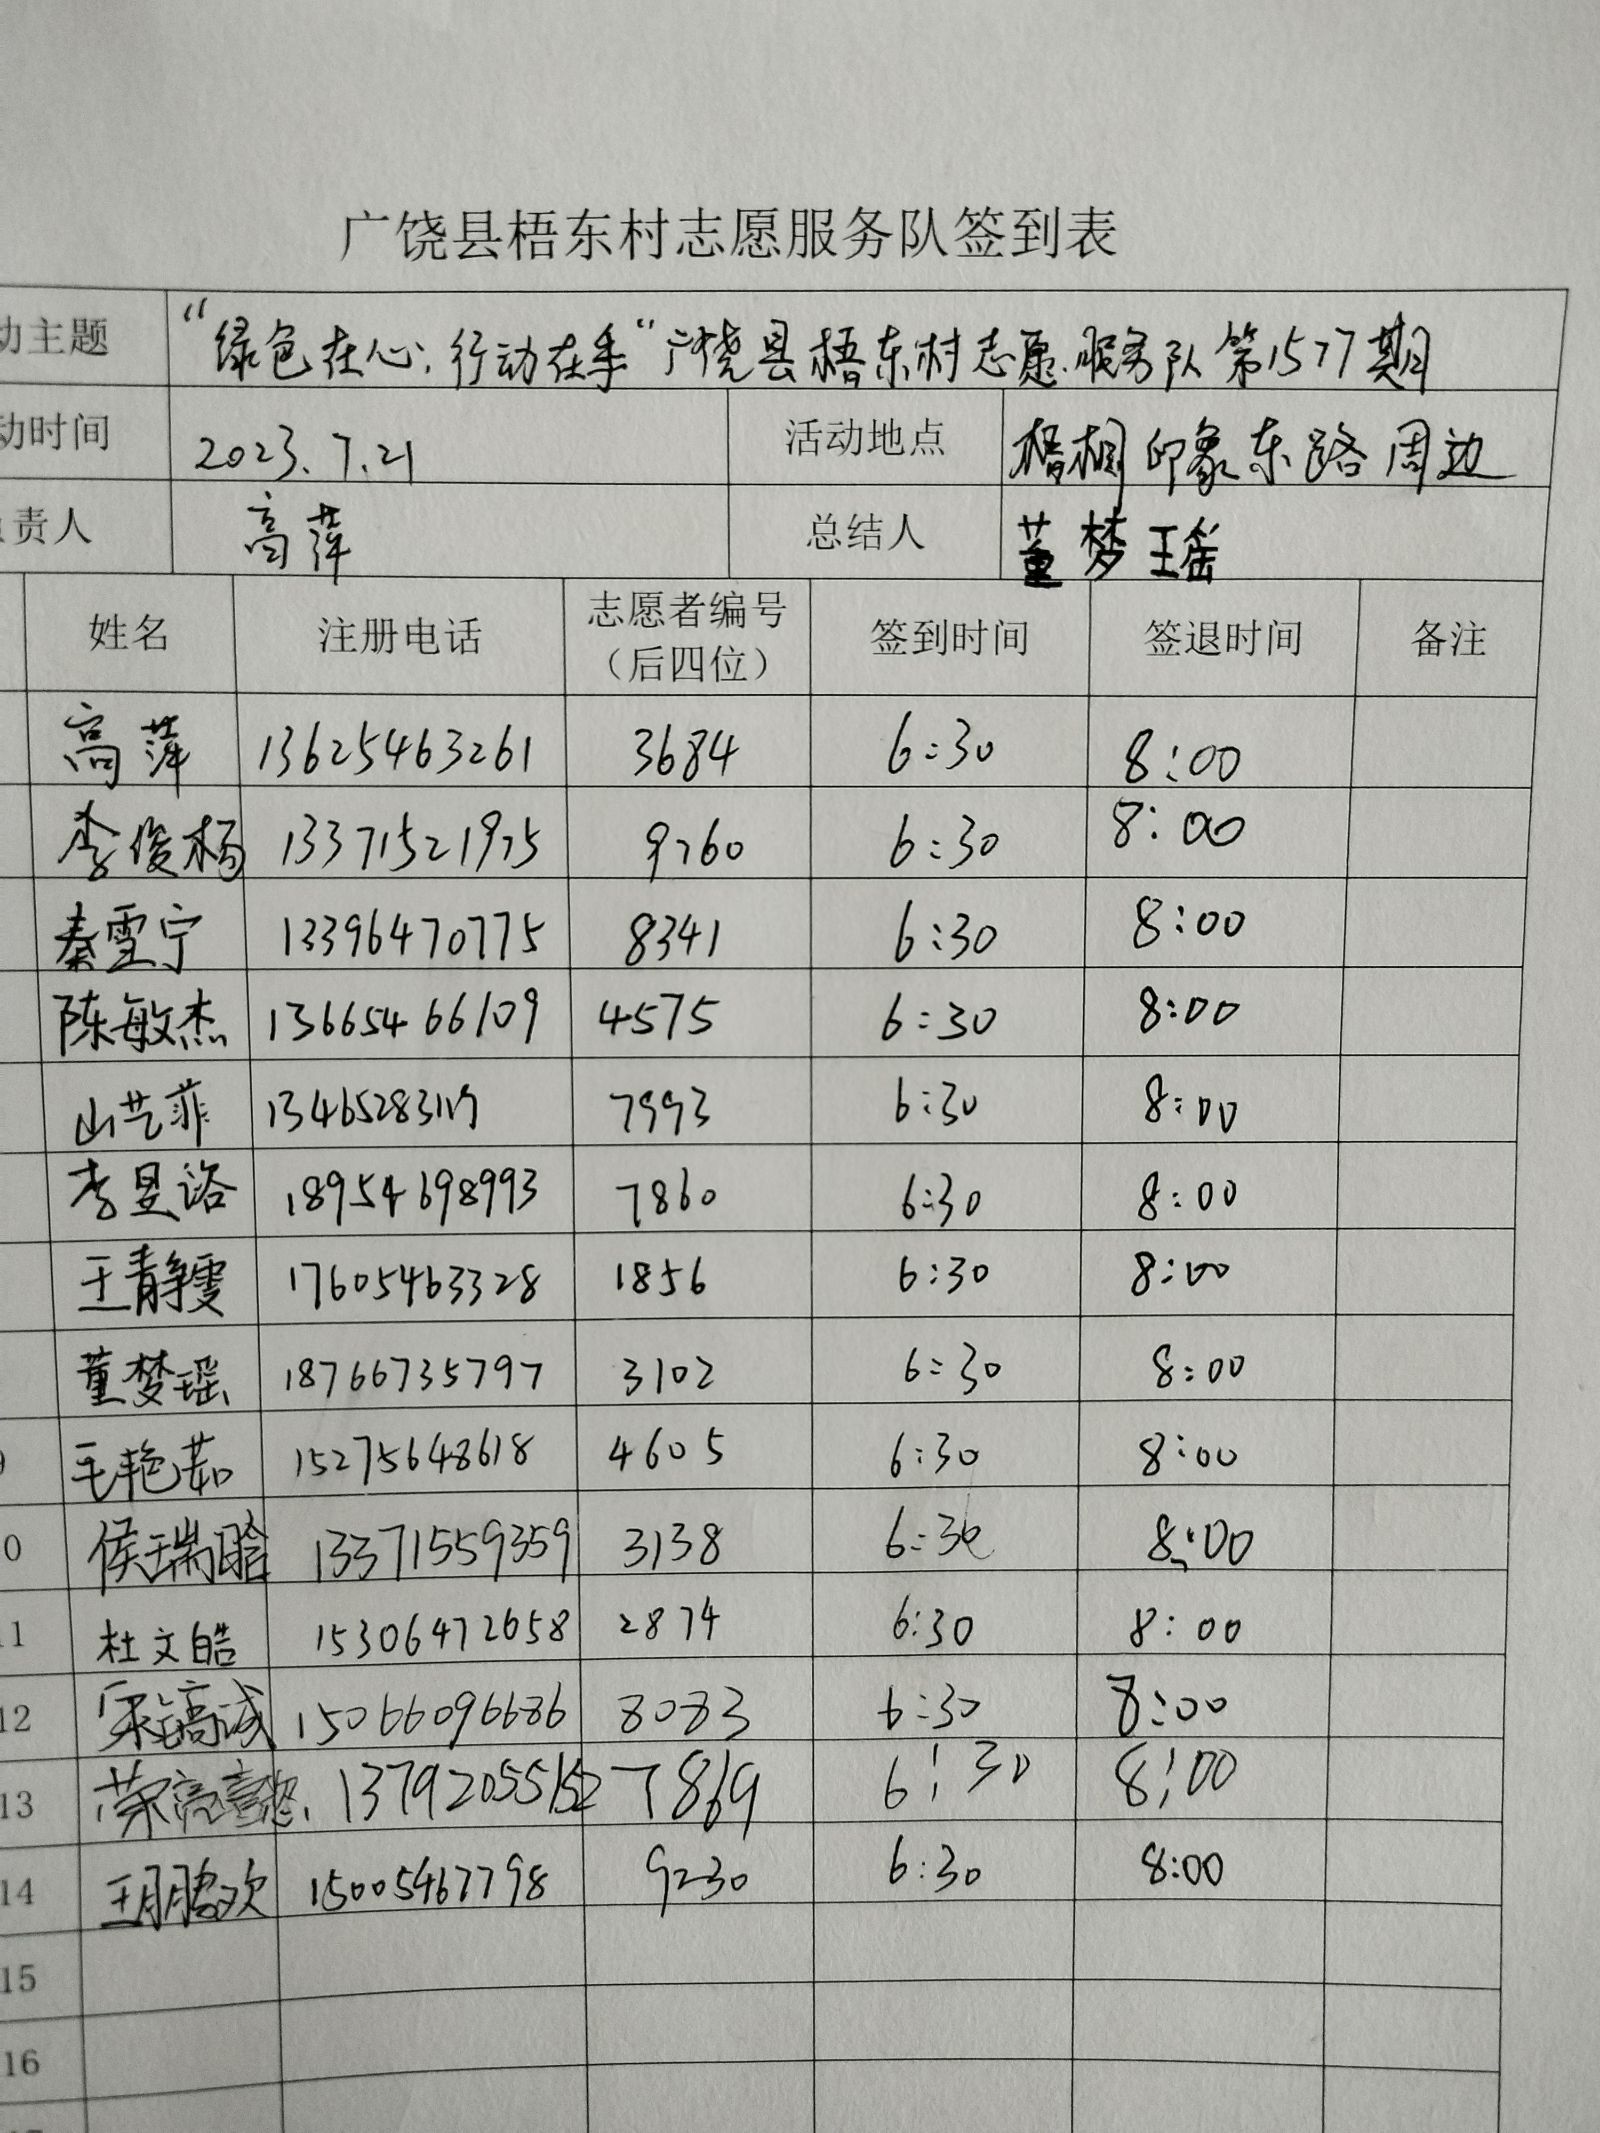 广饶县梧东村志愿服务队签到表
动主题 “绿色在心,行动在手“广饶县梧东村志愿服务队第1577期
动时间 2023.7.21 活动地点 梧桐印象东路周边
责人 高萍 总结人 董梦瑶
姓名 注册电话 志愿者编号（后四位） 签到时间 签退时间 备注
高萍 13625463261 3684 6:30 8:00
李俊杨 13371521975 9760 6:30 8:00
秦雪宁 13396470775 8341 6:30 8:00
陈敏杰 13665466109 4575 6:30 8:00
山艺菲 7993 6:30 8:00
李昱谘 18954698993 7860 6:30 8:00
王静雯 17605463328 1856 6:30 8:00
董梦瑶 18766735797 3102 6:30 8:00
毛艳茹 15275648618 4605 6:30 8:00
0 侯瑞晗 13371559359 3138 6:30 8:00
11 杜文皓 15306472658 2874 6:30 8:00
12 15066096686 8083 6:30 8:00
13 7869 6:30 8:00
14 15005467798 9230 6:30 8:00
15
16